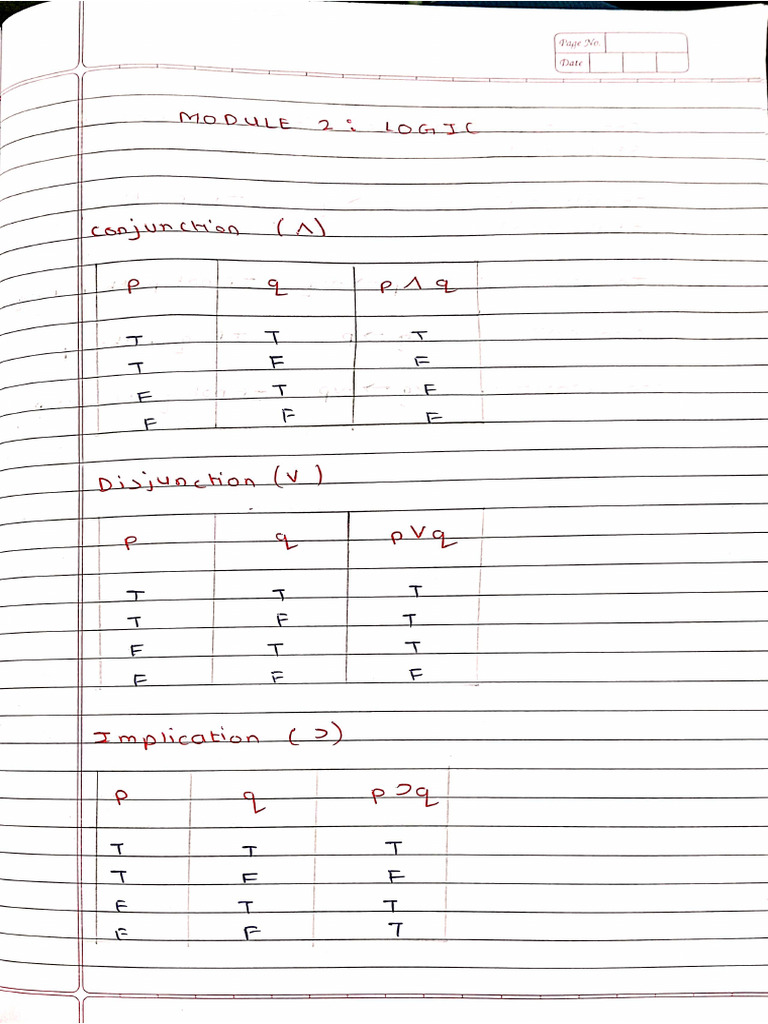 Page No.
Date
MODULE 2: LOGIC
Conjunction (∧)
p q p ∧ q
T T T
T F F
F T F
F F F
Disjunction (∨)
p q p ∨ q
T T T
T F T
F T T
F F F
Implication (⊃)
p q p ⊃ q
T T T
T F F
F T T
F F T